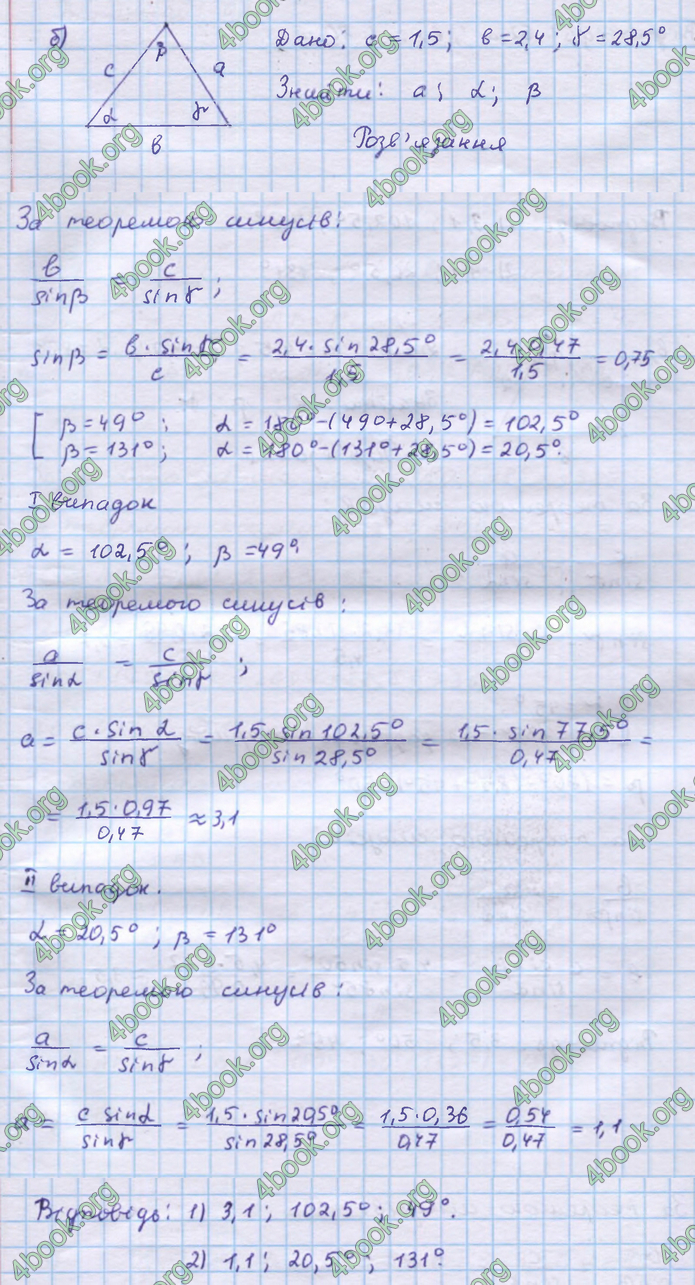 б)
β
c
a
α
γ
в
Дано: c = 1,5; в = 2,4; γ = 28,5°
Знайти: a; α; β
Розв'язання
За теоремою синусів:
в/sinβ = c/sinγ;
sinβ = в · sinγ/c = 2,4 · sin 28,5°/1,5 = 2,4 · 0,47/1,5 = 0,75
[ β = 49°; α = 180° - (49° + 28,5°) = 102,5°
β = 131°; α = 180° - (131° + 28,5°) = 20,5°.
I випадок
α = 102,5°; β = 49°.
За теоремого синусів:
a/sinα = c/sinγ;
a = c · sin α/sinγ = 1,5 · sin 102,5°/sin 28,5° = 1,5 · sin 77,5°/0,47 =
= 1,5 · 0,97/0,47 ≈ 3,1
II випадок.
α = 20,5°; β = 131°
За теоремою синусів:
a/sinα = c/sinγ;
a = c sinα/sinγ = 1,5 · sin 20,5°/sin 28,5° = 1,5 · 0,36/0,47 = 0,54/0,47 = 1,1
Відповідь: 1) 3,1; 102,5°; 49°.
2) 1,1; 20,5°; 131°.
4book.org